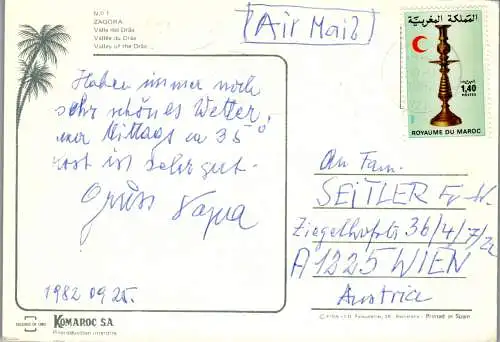 N.º 1
ZAGORA
Valle del Drâa
Vallée du Drâa
Valley of the Drâa
[Air Mail]
المملكة المغربية
1,40
POSTES
ROYAUME DU MAROC
Haben immer noch
sehr schönes Wetter,
nur Mittags ca 35°
Kost ist sehr gut.
Gruss Papa
1982 09 25.
An Fam.
SEITLER
Ziegelhofstr 36/4/7/
A 1225 WIEN
Austria
KOMAROC S.A.
Reproduction interdite
Printed in Spain